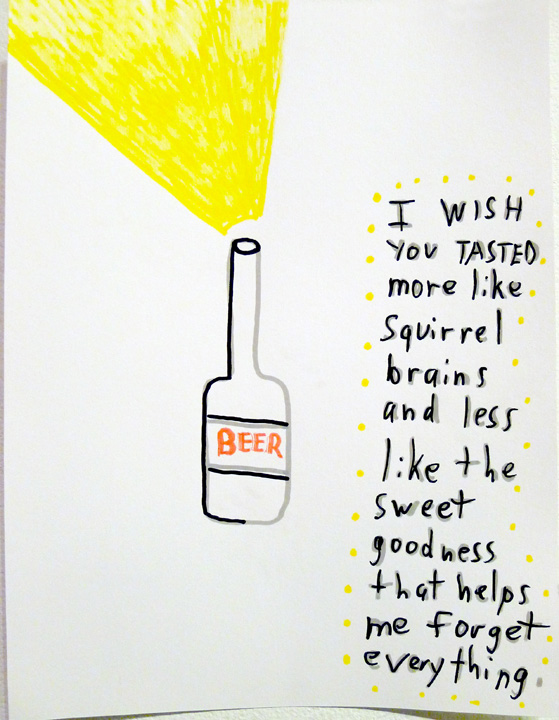 BEER
I WISH
YOU TASTED
more like
Squirrel
brains
and less
like the
sweet
goodness
that helps
me forget
everything.